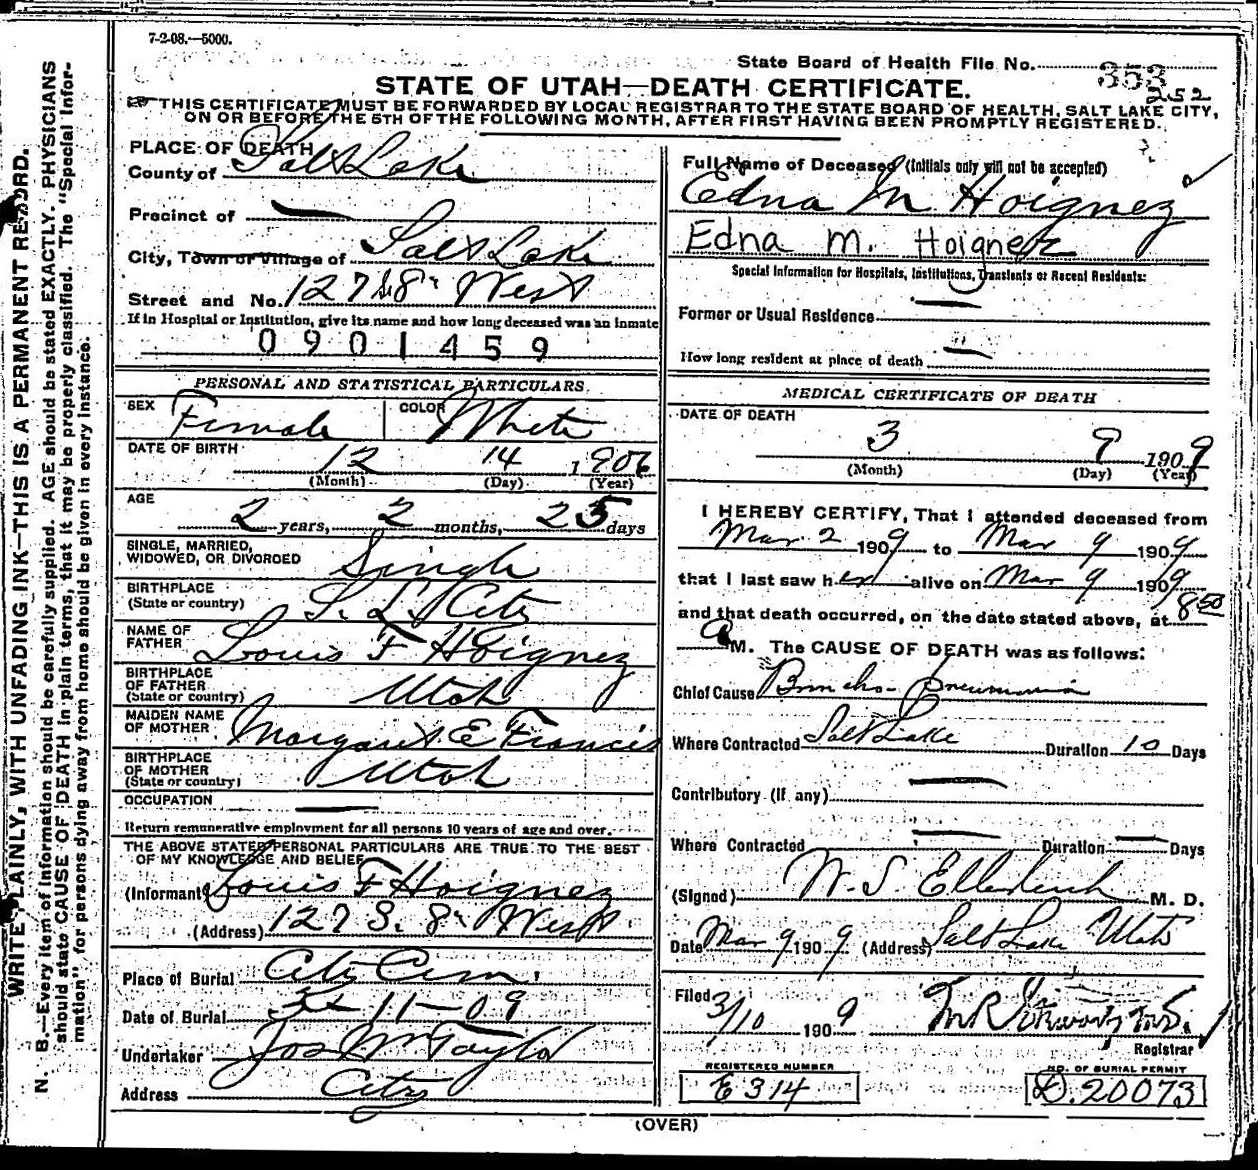 7-2-08.—5000.
State Board of Health File No. 353
252
STATE OF UTAH—DEATH CERTIFICATE.
THIS CERTIFICATE MUST BE FORWARDED BY LOCAL REGISTRAR TO THE STATE BOARD OF HEALTH, SALT LAKE CITY,
ON OR BEFORE THE 5TH OF THE FOLLOWING MONTH, AFTER FIRST HAVING BEEN PROMPTLY REGISTERED.
WRITE PLAINLY, WITH UNFADING INK—THIS IS A PERMANENT RECORD.
N. B.—Every item of information should be carefully supplied. AGE should be stated EXACTLY. PHYSICIANS
should state CAUSE OF DEATH in plain terms, that it may be properly classified. The "Special Infor-
mation" for persons dying away from home should be given in every instance.
PLACE OF DEATH
County of Salt Lake
Precinct of —
City, Town or Village of Salt Lake
Street and No. 127 S. 8" West
If in Hospital or Institution, give its name and how long deceased was an inmate
0901459
PERSONAL AND STATISTICAL PARTICULARS.
SEX Female COLOR White
DATE OF BIRTH 12 14 1906
(Month) (Day) (Year)
AGE
2 years, 2 months, 25 days
SINGLE, MARRIED,
WIDOWED, OR DIVORCED Single
BIRTHPLACE
(State or country) S. L. City
NAME OF
FATHER Louis F Hoignez
BIRTHPLACE
OF FATHER
(State or country) Utah
MAIDEN NAME
OF MOTHER Margaret E Francis
BIRTHPLACE
OF MOTHER
(State or country) Utah
OCCUPATION —
Return remunerative employment for all persons 10 years of age and over.
THE ABOVE STATED PERSONAL PARTICULARS ARE TRUE TO THE BEST
OF MY KNOWLEDGE AND BELIEF
(Informant) Louis F Hoignez
(Address) 127 S. 8" West
Place of Burial City Cem.
Date of Burial 3-11-09
Undertaker Jos Wm Taylor
Address City
Full Name of Deceased (Initials only will not be accepted)
Edna M Hoignez
Edna M. Hoignez
Special Information for Hospitals, Institutions, Transients or Recent Residents:
Former or Usual Residence —
How long resident at place of death —
MEDICAL CERTIFICATE OF DEATH
DATE OF DEATH
3 9 1909
(Month) (Day) (Year)
I HEREBY CERTIFY, That I attended deceased from
Mar 2 1909 to Mar 9 1909
that I last saw her alive on Mar 9 1909
and that death occurred, on the date stated above, at 8 50
A M. The CAUSE OF DEATH was as follows:
Chief Cause Broncho-pneumonia
Where Contracted Salt Lake Duration 10 Days
Contributory (if any) —
Where Contracted — Duration — Days
(Signed) W. S. Ellerbeck M. D.
Date Mar 9 1909 (Address) Salt Lake Utah
Filed 3/10 1909
Registrar
REGISTERED NUMBER
E 314
NO. OF BURIAL PERMIT
D. 20073
(OVER)